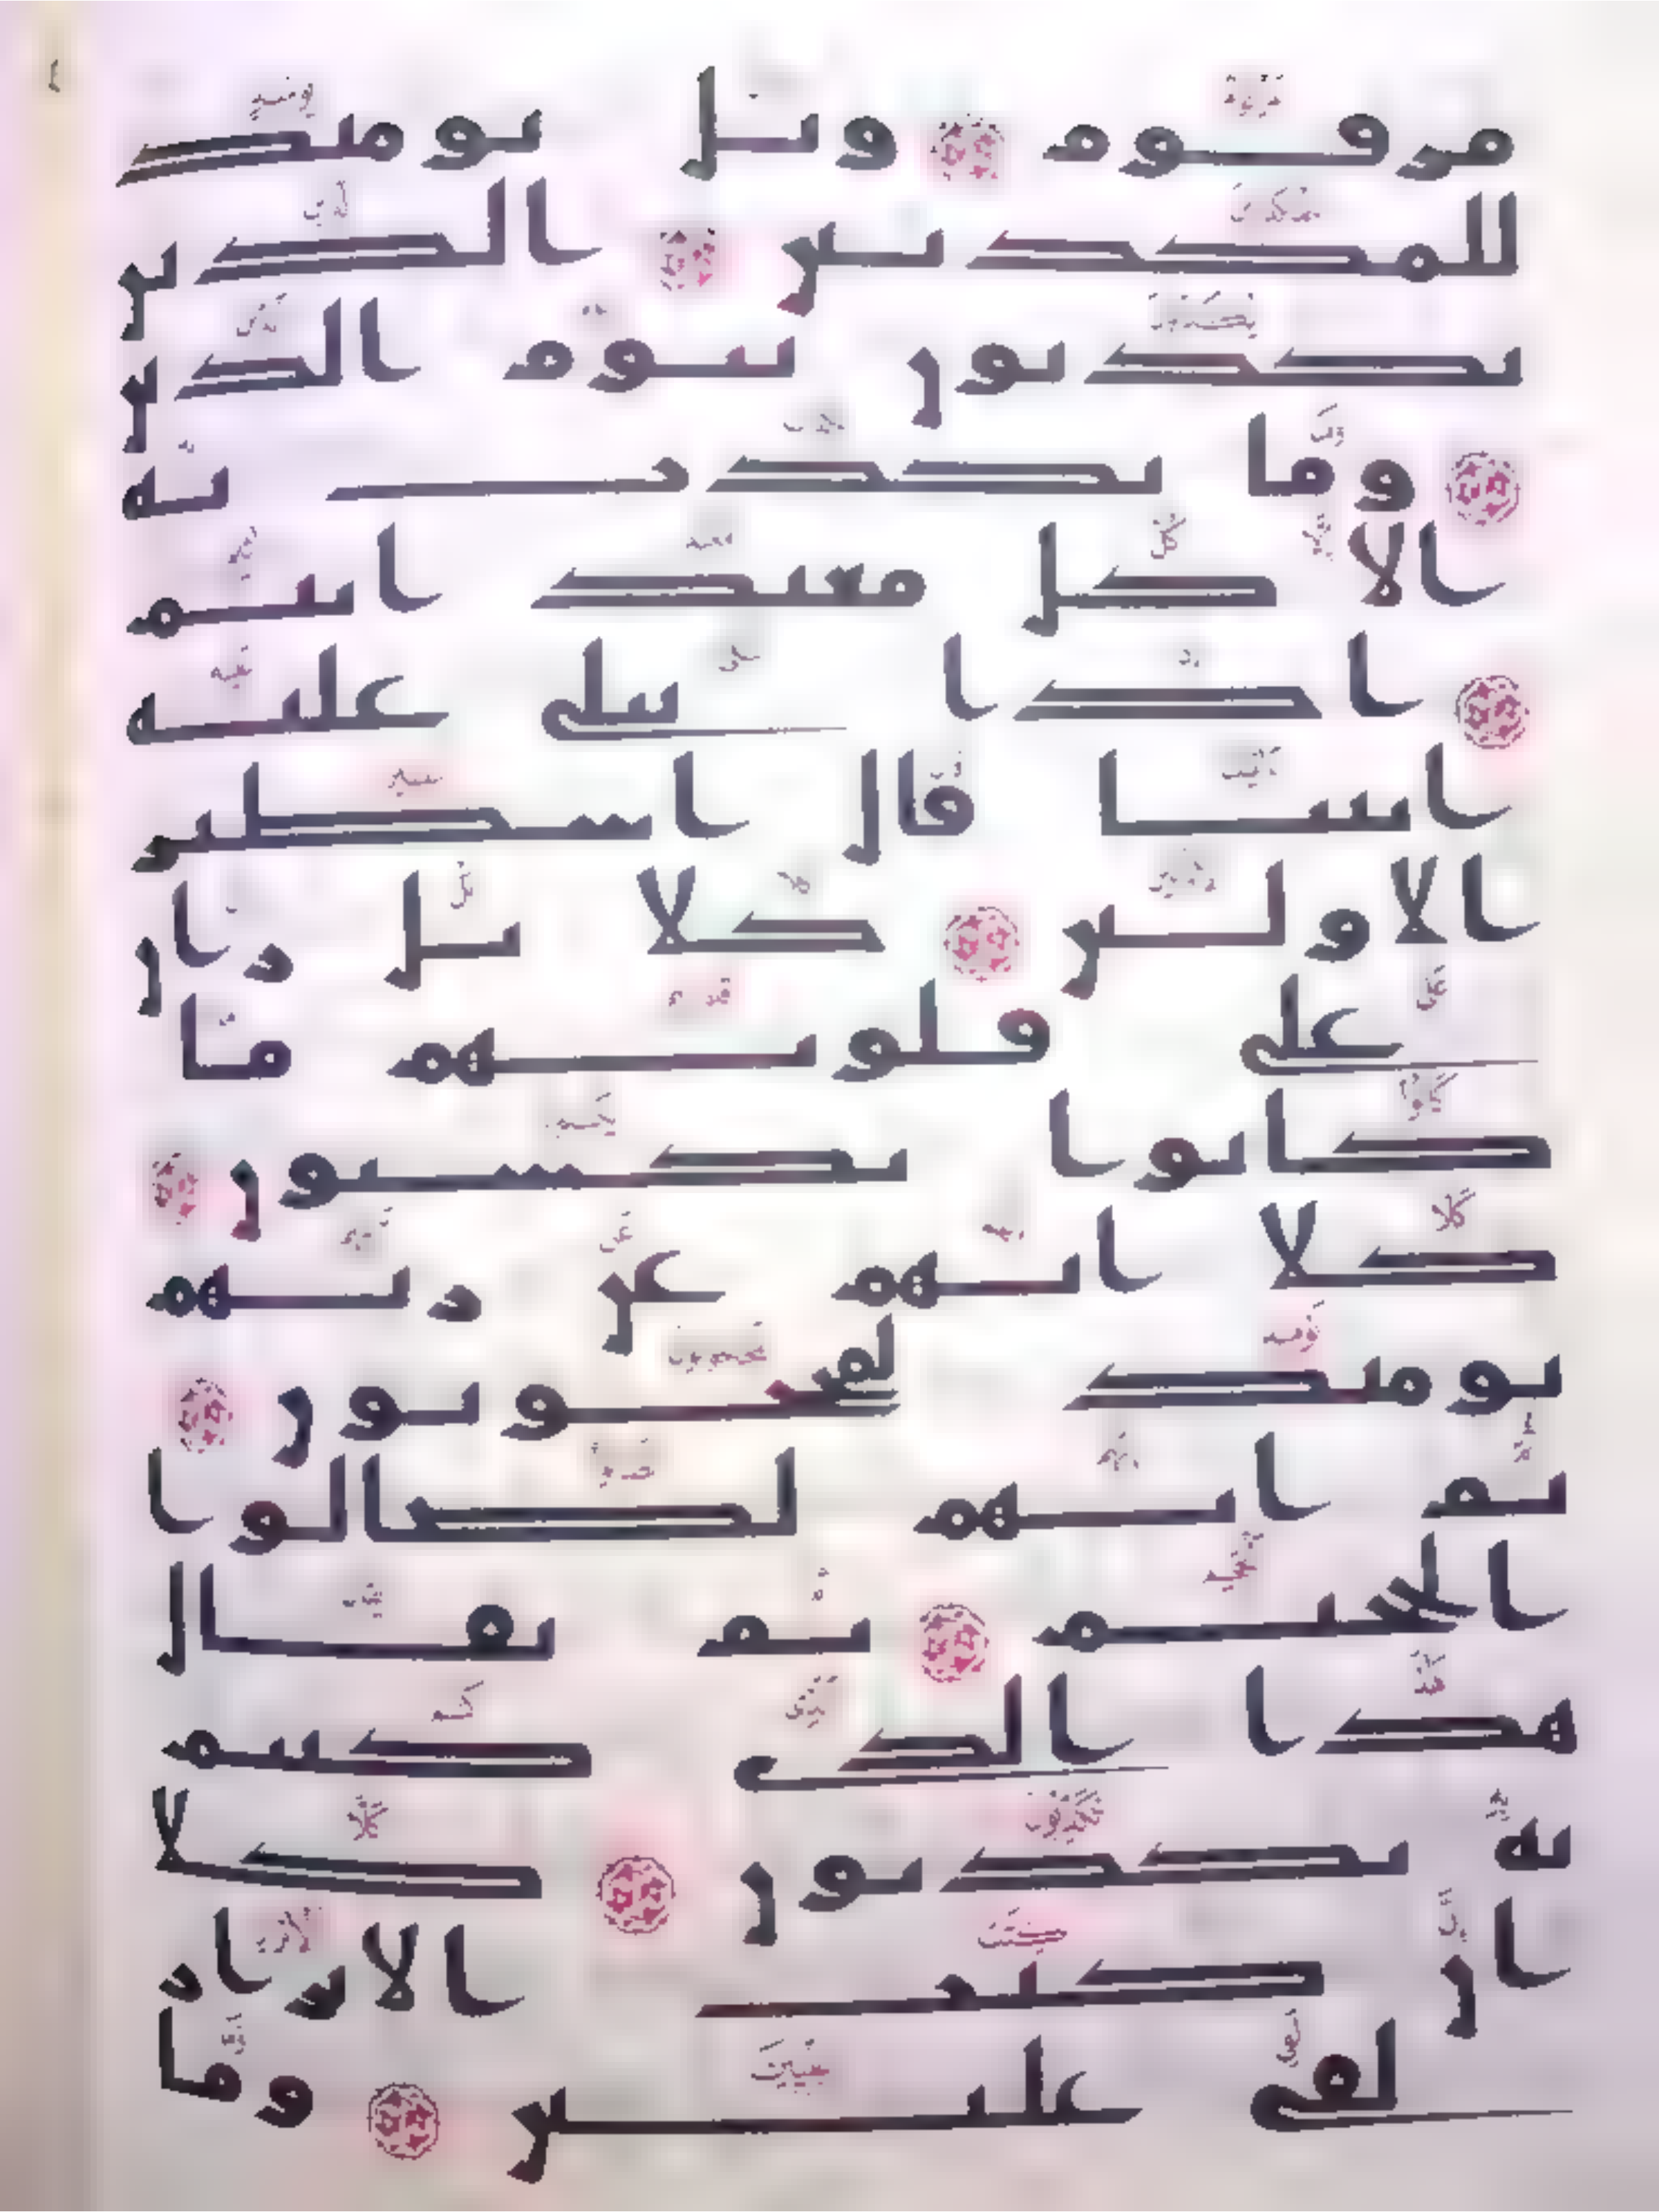 ٤
مرقوم ويل يومئذ
للمكذبين الذين
يكذبون بيوم الدين
وما يكذب به
الا كل معتد اثيم
اذا تتلى عليه
ايتنا قال اسطير
الاولين كلا بل ران
على قلوبهم ما
كانوا يكسبون
كلا انهم عن ربهم
يومئذ لمحجوبون
ثم انهم لصالوا
الجحيم ثم يقال
هذا الذي كنتم
به تكذبون كلا
ان كتب الابرار
لفي عليين وما